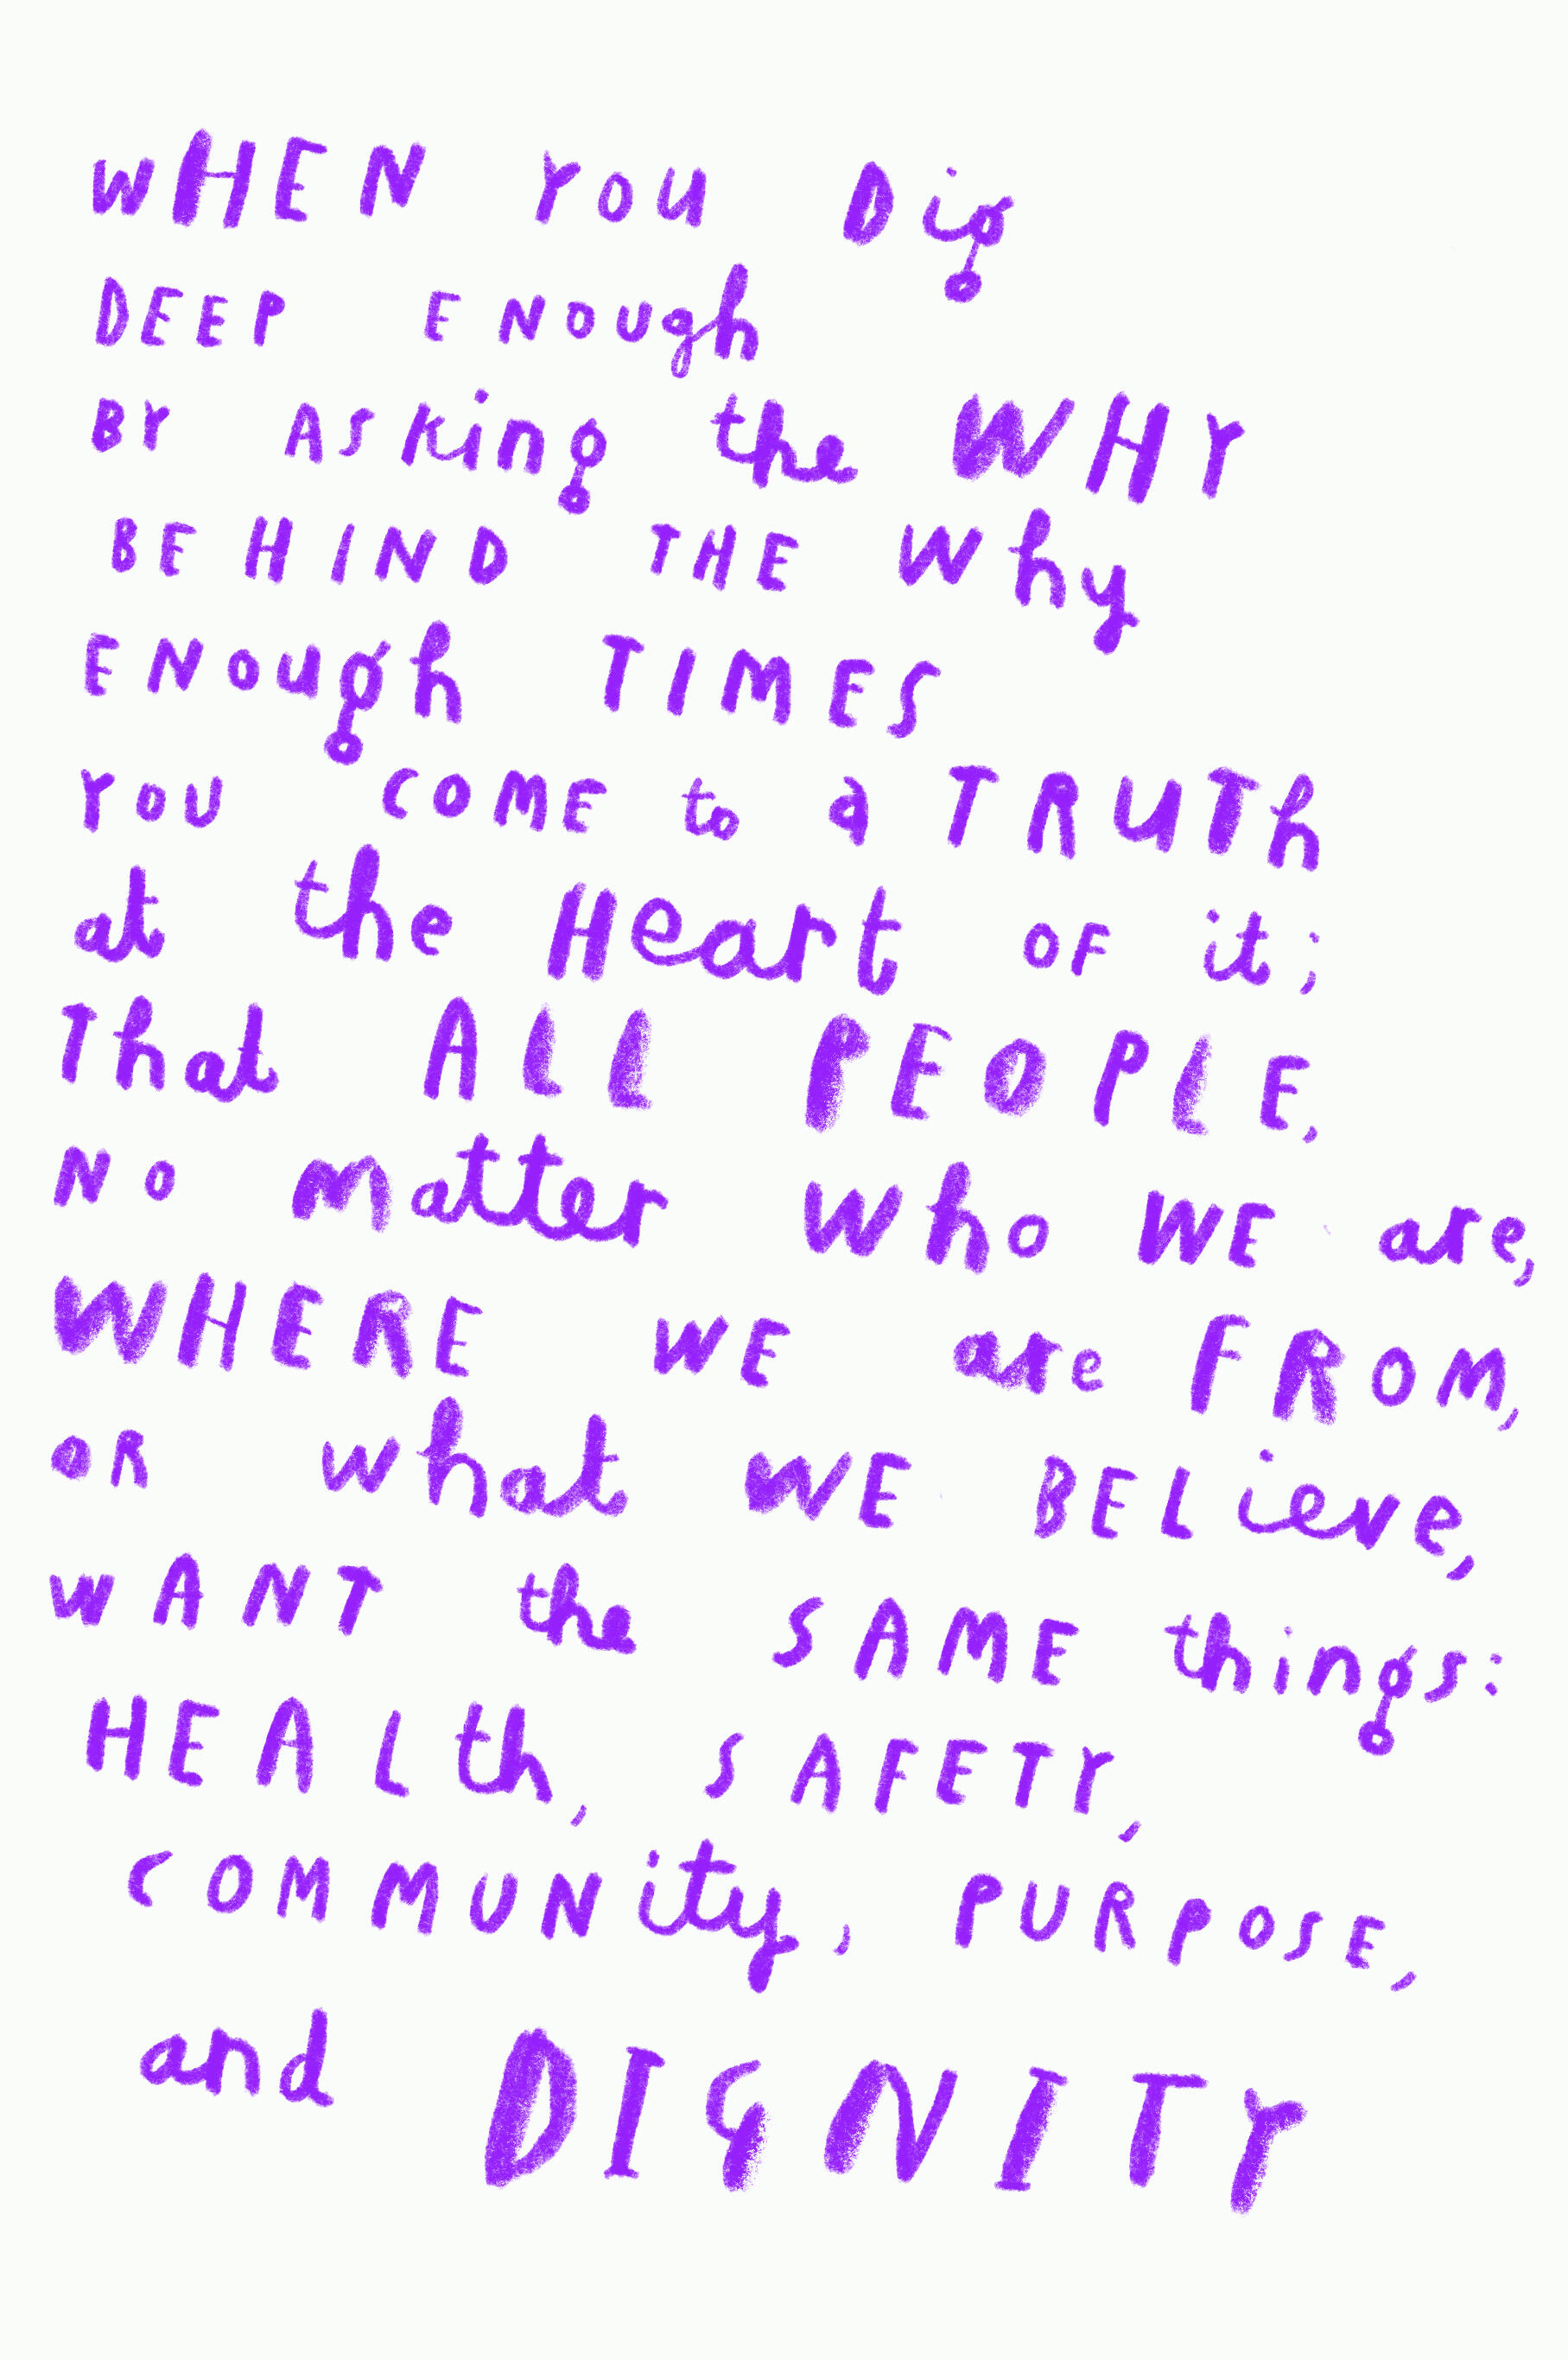 WHEN YOU Dig
DEEP ENOUgh
BY ASking the WHY
BEHIND THE Why
ENOugh TIMES
YOU COME to a TRUTh
at the Heart OF it;
That ALL PEOPLE,
NO Matter Who WE are,
WHERE WE are FROM,
OR What WE BELieve,
WANT the SAME things:
HEALth, SAFETY,
COMMUNity, PURPOSE,
and DIGNITY